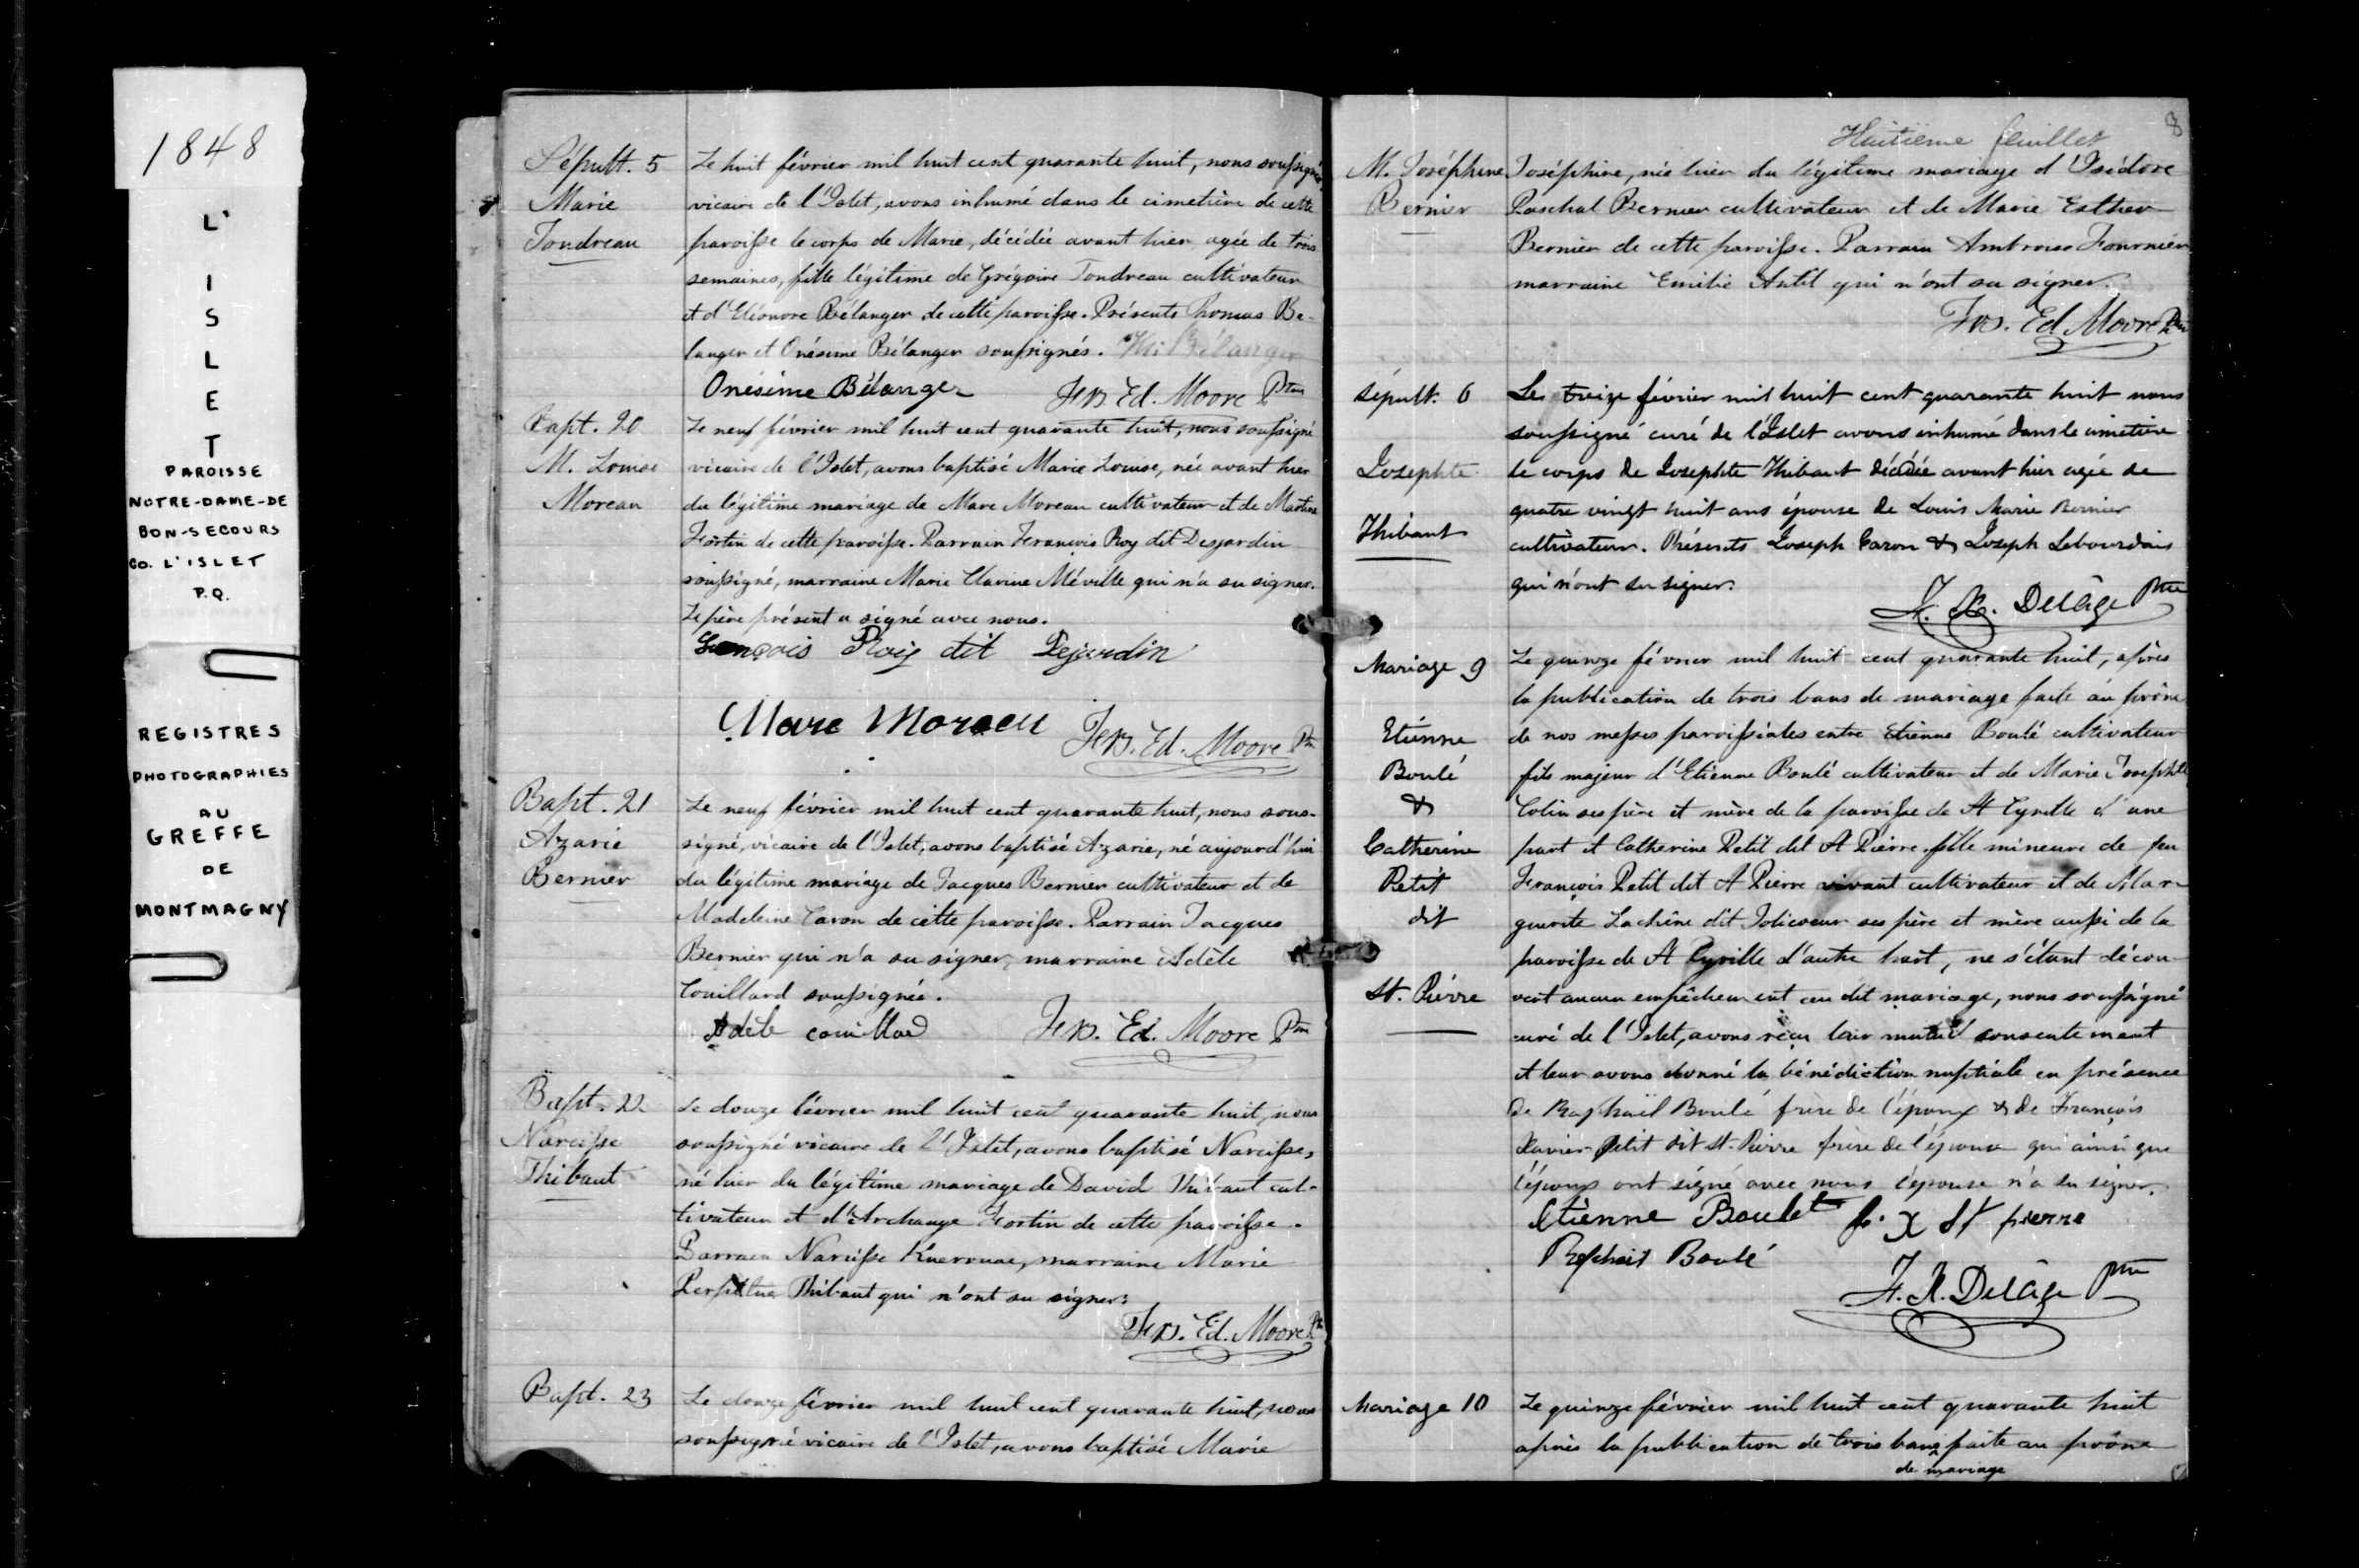 1848
L'
I
S
L
E
T
PAROISSE
NOTRE-DAME-DE
BON-SECOURS
CO. L'ISLET
P.Q.
REGISTRES
PHOTOGRAPHIES
AU
GREFFE
DE
MONTMAGNY
Sépult. 5
Marie
Tondreau
Le huit février mil huit cent quarante huit, nous soussigné,
vicaire de l'Islet, avons inhumé dans le cimetière de cette
paroisse le corps de Marie, décédée avant hier agée de trois
semaines, fille légitime de Grégoire Tondreau cultivateur
et d'Eléonore Bélanger de cette paroisse. Présents Thomas Be-
langer et Onésime Bélanger soussignés. Ths Bélanger
Onésime Bélanger Frs Ed. Moore Ptre
Bapt. 20
M. Louise
Moreau
Le neuf février mil huit cent quarante huit, nous soussigné
vicaire de l'Islet, avons baptisé Marie Louise, née avant hier
du légitime mariage de Marc Moreau cultivateur et de Martine
Fortin de cette paroisse. Parrain François Roy dit Desjardin
soussigné, marraine Marie Clavine Méville qui n'a su signer.
Le père présent a signé avec nous.
François Roiy dit Dejardin
Marc Moreau Frs. Ed. Moore Ptre
Bapt. 21
Azarie
Bernier
Le neuf février mil huit cent quarante huit, nous sous-
signé, vicaire de l'Islet, avons baptisé Azarie, né aujourd'hui
du légitime mariage de Jacques Bernier cultivateur et de
Madeleine Caron de cette paroisse. Parrain Jacques
Bernier qui n'a su signer, marraine Adèle
Couillard soussignée.
Adèle couillard Frs. Ed. Moore Ptre
Bapt. 22
Narcisse
Thibaut
Le douze février mil huit cent quarante huit, nous
soussigné vicaire de l'Islet, avons baptisé Narcisse,
né hier du légitime mariage de David Thibaut cul-
tivateur et d'Archange Fortin de cette paroisse.
Parrain Narcisse Kuerouac, marraine Marie
Perpétue Thibaut qui n'ont su signer.
Frs. Ed. Moore Ptre
Bapt. 23
Le douze février mil huit cent quarante huit, nous
soussigné vicaire de l'Islet, avons baptisé Marie
Huitième feuillet 8
M. Joséphine
Bernier
Joséphine, née hier du légitime mariage d'Isidore
Paschal Bernier cultivateur et de Marie Esther
Bernier de cette paroisse. Parrain Ambroise Fournier
marraine Emilie Antil qui n'ont su signer.
Frs. Ed. Moore Ptre
Sépult. 6
Josephte
Thibaut
Le treize février mil huit cent quarante huit nous
soussigné curé de l'Islet avons inhumé dans le cimetière
le corps de Josephte Thibaut décédée avant hier agée de
quatre vingt huit ans épouse de Louis Marie Bernier
cultivateur. Présents Joseph Caron & Joseph Lebourdais
qui n'ont su signer.
F. X. Delâge Ptre
Mariage 9
Etienne
Boulé
&
Catherine
Petit
dit
St. Pierre
Le quinze février mil huit cent quarante huit, après
la publication de trois bans de mariage faite au prône
de nos messes paroissiales entre Etienne Boulé cultivateur
fils majeur d'Etienne Boulé cultivateur et de Marie Josephte
Colin ses père et mère de la paroisse de St Cyrille d'une
part et Catherine Petit dit St Pierre fille mineure de feu
François Petit dit St Pierre vivant cultivateur et de Mar-
guerite Lachêne dit Jolicoeur ses père et mère aussi de la
paroisse de St Cyrille d'autre part, ne s'étant décou-
vert aucun empêchement au dit mariage, nous soussigné
curé de l'Islet, avons reçu leur mutuel consentement
et leur avons donné la bénédiction nuptiale en présence
de Raphaël Boulé frère de l'époux & de François
Xavier Petit dit St. Pierre frère de l'épouse qui ainsi que
l'époux ont signé avec nous l'épouse n'a su signer.
Etienne Boulet fr. X St pierre
Raphael Boulé
F. X. Delâge Ptre
Mariage 10
Le quinze février mil huit cent quarante huit
après la publication de trois bans faite au prône
de mariage